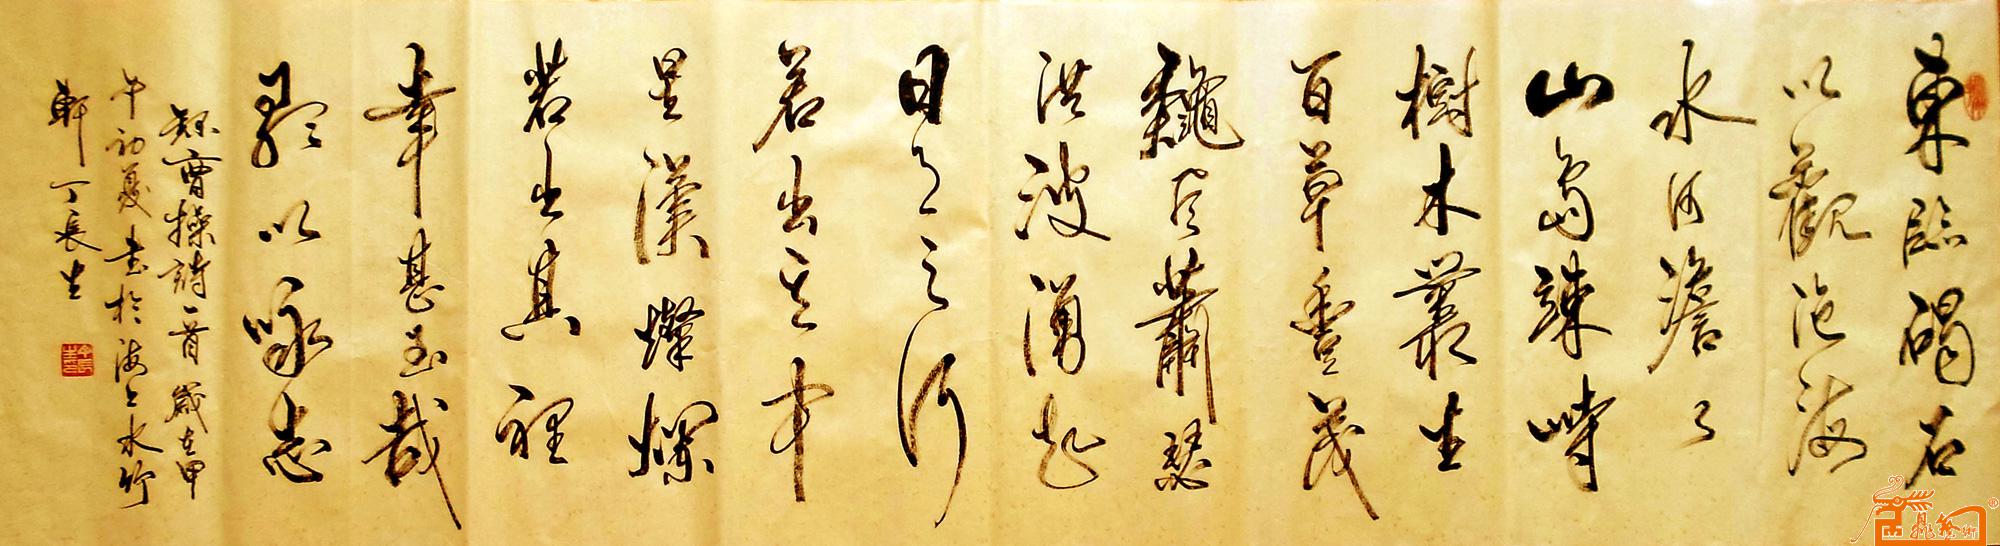 東臨碣石
以觀滄海
水何澹々
山島竦峙
樹木叢生
百草豊茂
龝風蕭瑟
洪波湧起
日月之行
若出其中
星漢燦爛
若出其裡
幸甚至哉
歌以咏志
錄曹操詩一首歲在甲
午初夏書於海上水竹
軒丁長生